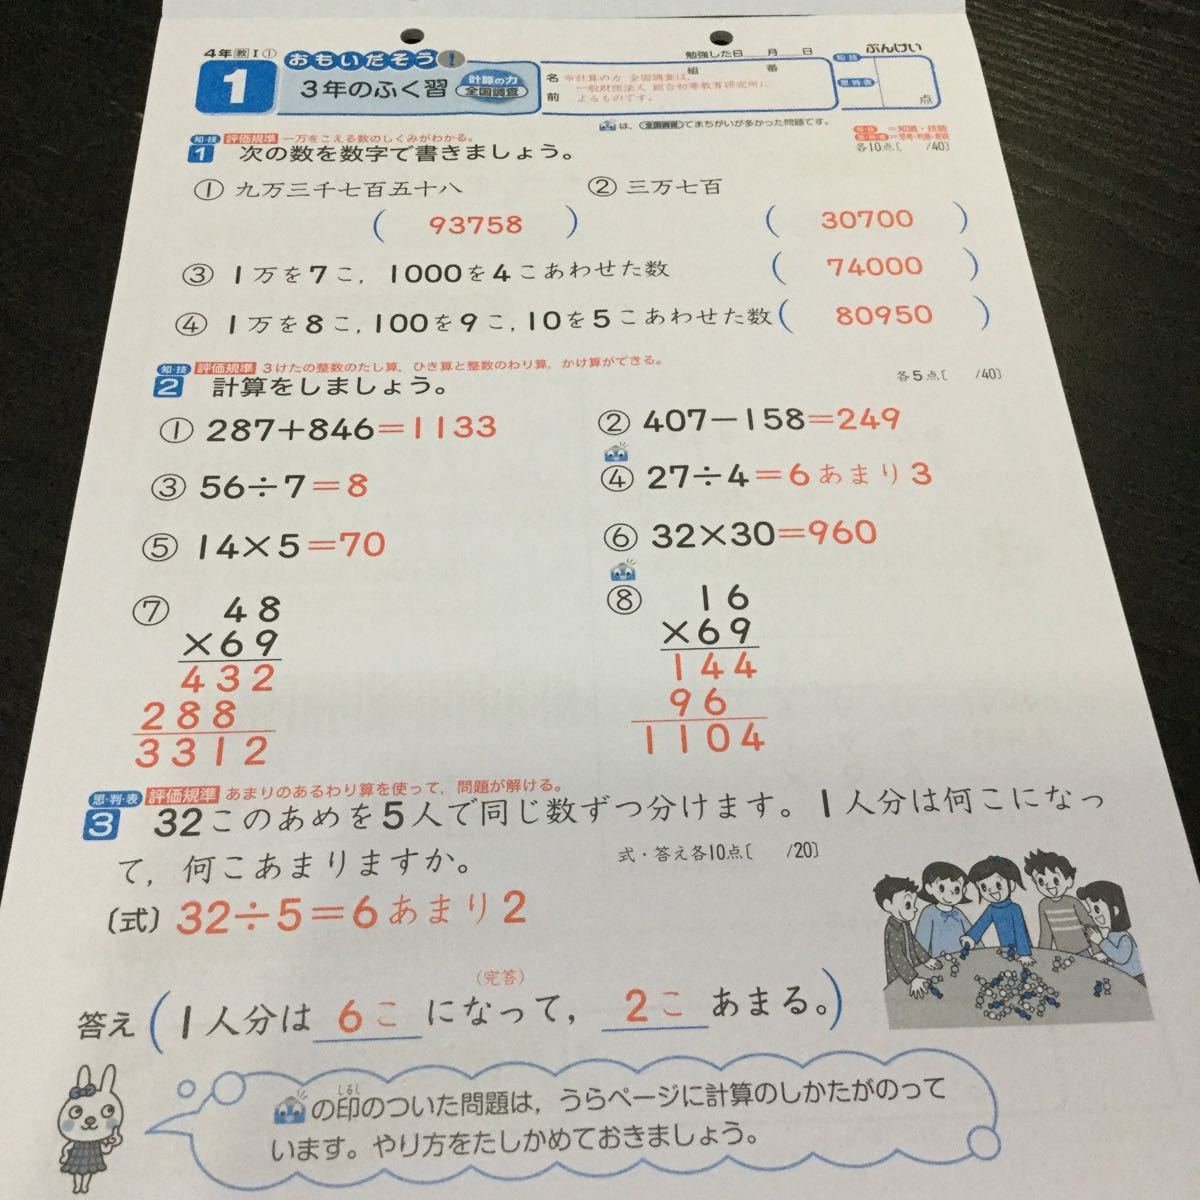 4年 教 I ①
おもいだそう!
勉強した日 月 日
ぶんけい
1
3年のふく習
計算の力
全国調査
名前
組 番
※計算の力 全国調査は,
一般財団法人 総合初等教育研究所に
よるものです。
知・技
思・判・表
点
は, 全国調査 でまちがいが多かった問題です。
知・技 =知識・技能
思・判・表 =思考・判断・表現
知・技 評価規準 一万をこえる数のしくみがわかる。
1 次の数を数字で書きましょう。
各10点〔 /40〕
① 九万三千七百五十八 ② 三万七百
( 93758 ) ( 30700 )
③ 1万を7こ, 1000を4こあわせた数 ( 74000 )
④ 1万を8こ, 100を9こ, 10を5こあわせた数 ( 80950 )
知・技 評価規準 3けたの整数のたし算, ひき算と整数のわり算, かけ算ができる。
2 計算をしましょう。
各5点〔 /40〕
① 287+846=1133 ② 407-158=249
③ 56÷7=8 ④ 27÷4=6あまり3
⑤ 14×5=70 ⑥ 32×30=960
⑦ 48 ⑧ 16
×69 ×69
432 144
288 96
3312 1104
思・判・表 評価規準 あまりのあるわり算を使って, 問題が解ける。
3 32このあめを5人で同じ数ずつ分けます。1人分は何こになっ
て, 何こあまりますか。
式・答え各10点〔 /20〕
〔式〕 32÷5=6あまり2
(完答)
答え (1人分は 6こ になって, 2こ あまる。)
しるし
の印のついた問題は, うらページに計算のしかたがのって
います。やり方をたしかめておきましょう。